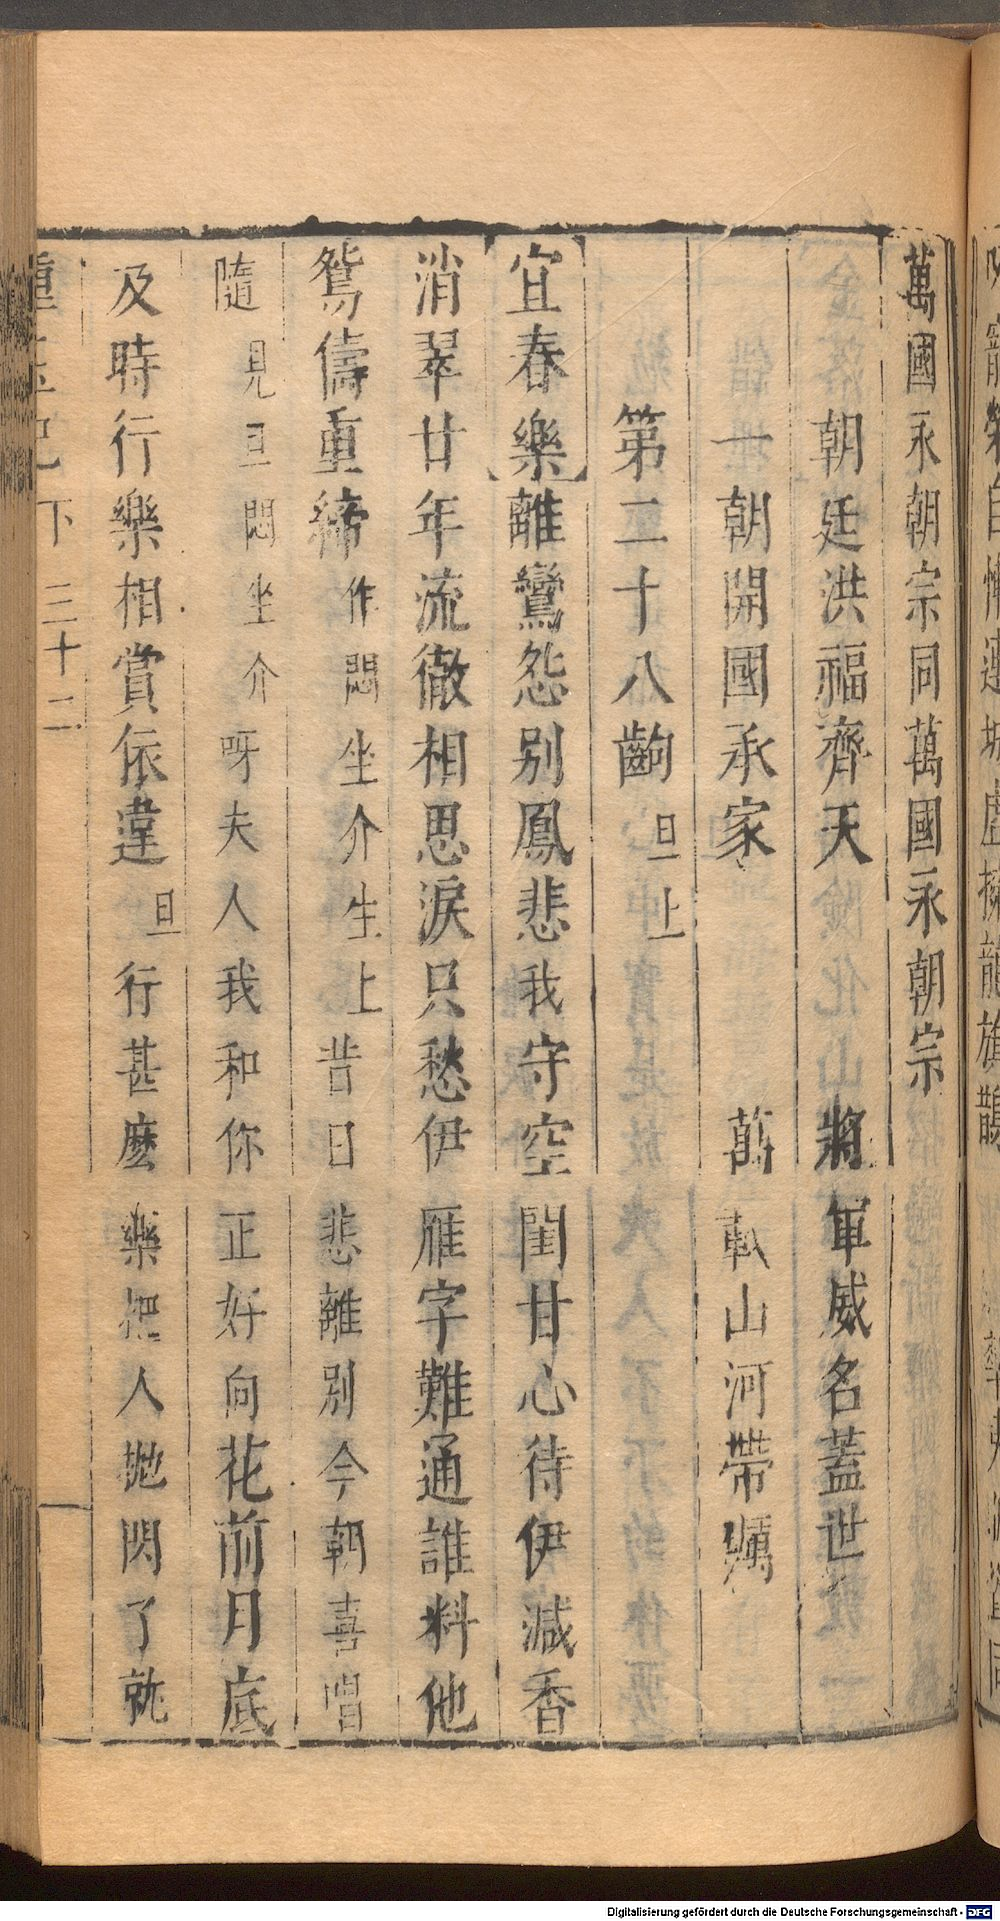 萬國永朝宗同萬國永朝宗
朝廷洪福齊天 將軍威名蓋世
一朝開國承家 萬載山河帶礪
第二十八齣 旦上
宜春樂離鸞怨别鳳悲我守空閨甘心待伊減香
消翠廿年流徹相思淚只愁伊雁字難通誰料他
鴛儔重締作悶坐介生上昔日悲離別今朝喜唱
隨見旦悶坐介呀夫人我和你正好向花前月底
及時行樂相賞依違旦行甚麽樂把人拋閃了就
重玉記 下 三十二
Digitalisierung gefördert durch die Deutsche Forschungsgemeinschaft - DFG